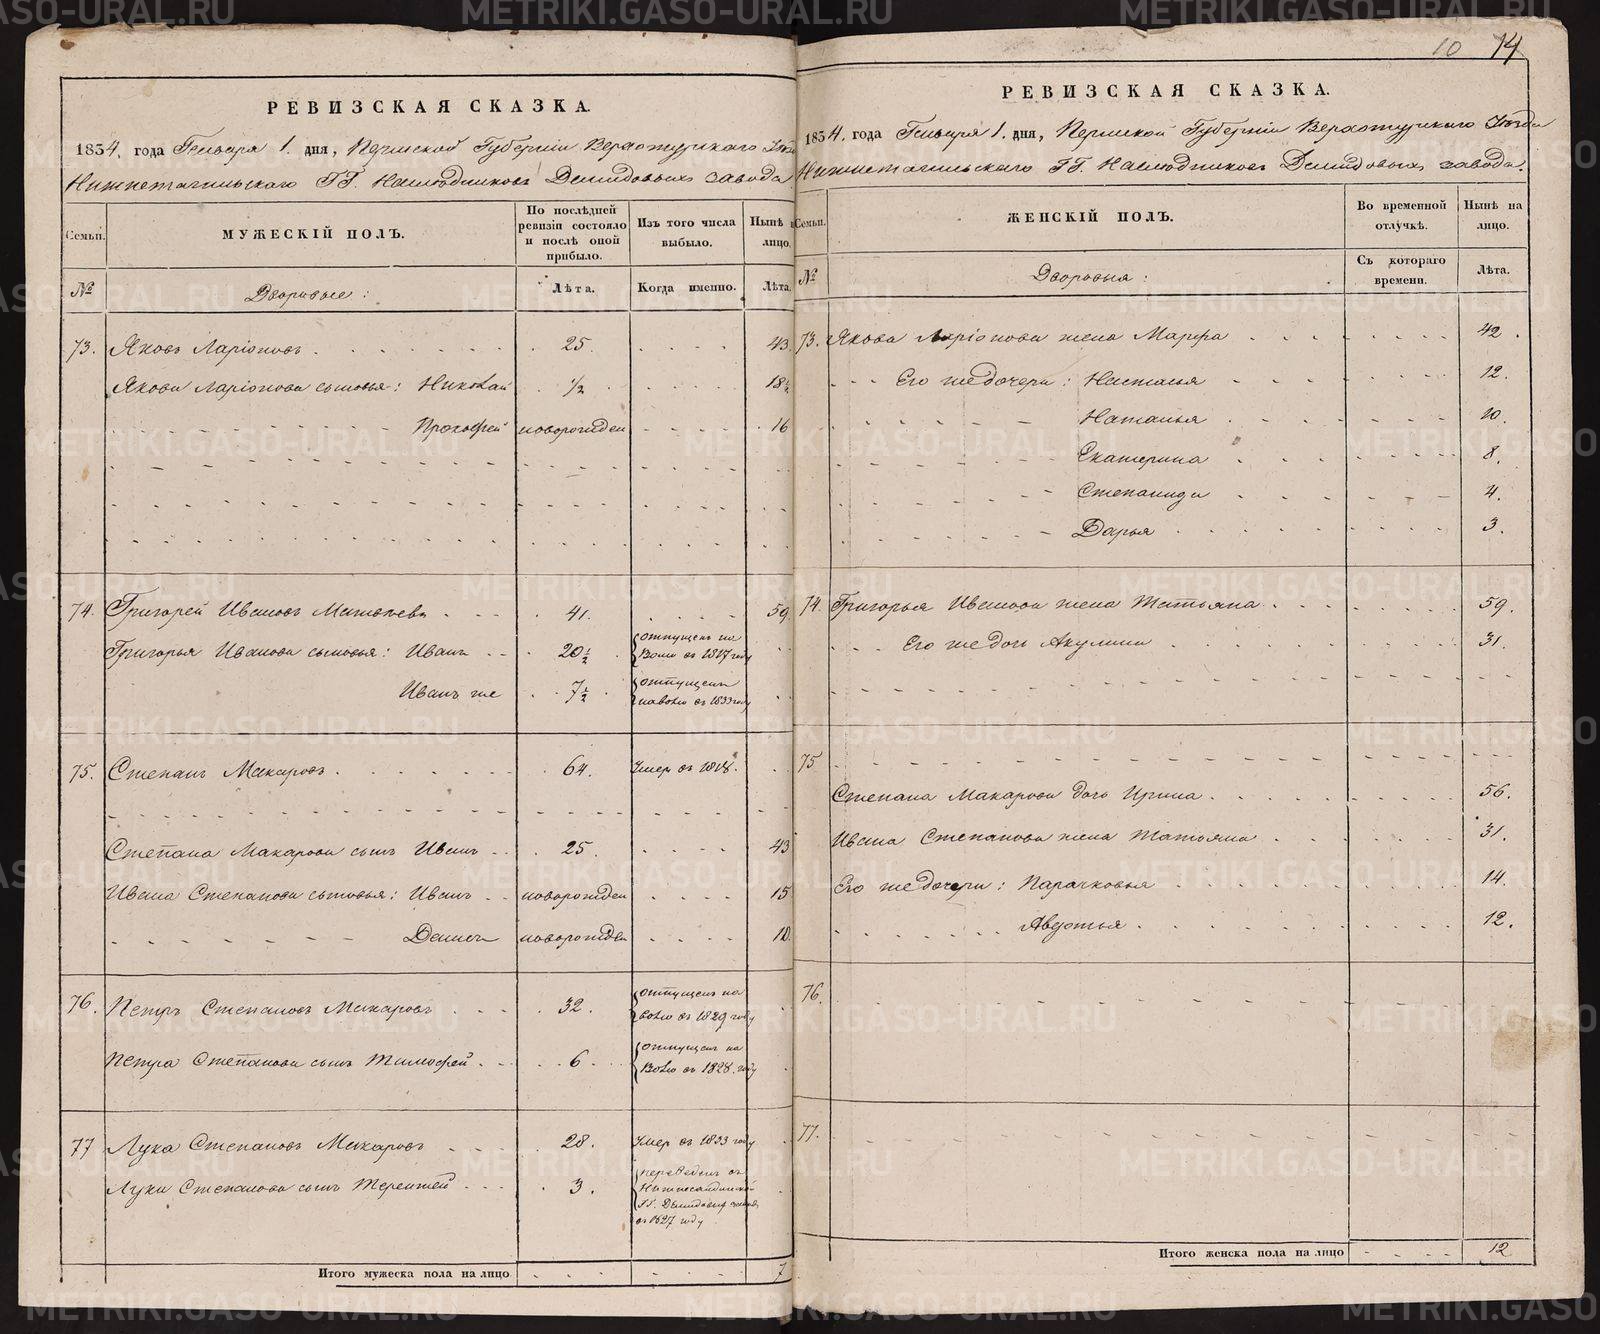 METRIKI.GASO-URAL.RU
РЕВИЗСКАЯ СКАЗКА.
1834, года Генваря 1. дня, Пермской Губерніи Верхотурскаго Уѣзда
Нижнетагильскаго ГГ. Наслѣдниковъ Демидовыхъ завода
Семьи. МУЖЕСКІЙ ПОЛЪ. По послѣдней ревизіи состояло и послѣ оной прибыло. Изъ того числа выбыло. Нынѣ на лицо.
№ Дворовые: Лѣта. Когда именно. Лѣта.
73. Яковъ Ларіоновъ 25. 43.
Якова Ларіонова сыновья: Николай ½ 18½
Прокофей новорожден 16
74. Григорей Ивановъ Матвѣевъ 41. 59
Григорья Иванова сыновья: Иванъ 20½ отпущенъ на волю въ 1817 году
Иванъ же 7½ отпущенъ на волю въ 1833 году
75. Степанъ Макаровъ 64. Умеръ въ 1818.
Степана Макарова сынъ Иванъ 25. 43
Ивана Степанова сыновья: Иванъ новорожден 15
Денисъ новорожден 10.
76. Петръ Степановъ Макаровъ 32. отпущенъ на волю въ 1829 году
Петра Степанова сынъ Тимофей 6. отпущенъ на волю въ 1828. году
77 Лука Степановъ Макаровъ 28. Умеръ въ 1833 году
Луки Степанова сынъ Терентей 3. переведенъ въ ГГ. Демидовыхъ въ 1827 году
Итого мужеска пола на лицо 7
10 14
РЕВИЗСКАЯ СКАЗКА.
1834, года Генваря 1. дня, Пермской Губерніи Верхотурскаго Уѣзда
Нижнетагильскаго ГГ. Наслѣдниковъ Демидовыхъ завода.
Семьи. ЖЕНСКІЙ ПОЛЪ. Во временной отлучкѣ. Нынѣ на лицо.
№ Дворовыя: Съ котораго времени. Лѣта.
73. Якова Ларіонова жена Марфа 42.
Его же дочери: Настасья 12.
Наталья 10.
Екатерина 8.
Степанида 4.
Дарья 3.
74. Григорья Иванова жена Татьяна 59.
Его же дочь Акулина 31.
75
Степана Макарова дочь Ирина 56.
Ивана Степанова жена Татьяна 31.
Его же дочери: Парасковья 14.
Авдотья 12.
76.
77.
Итого женска пола на лицо 12